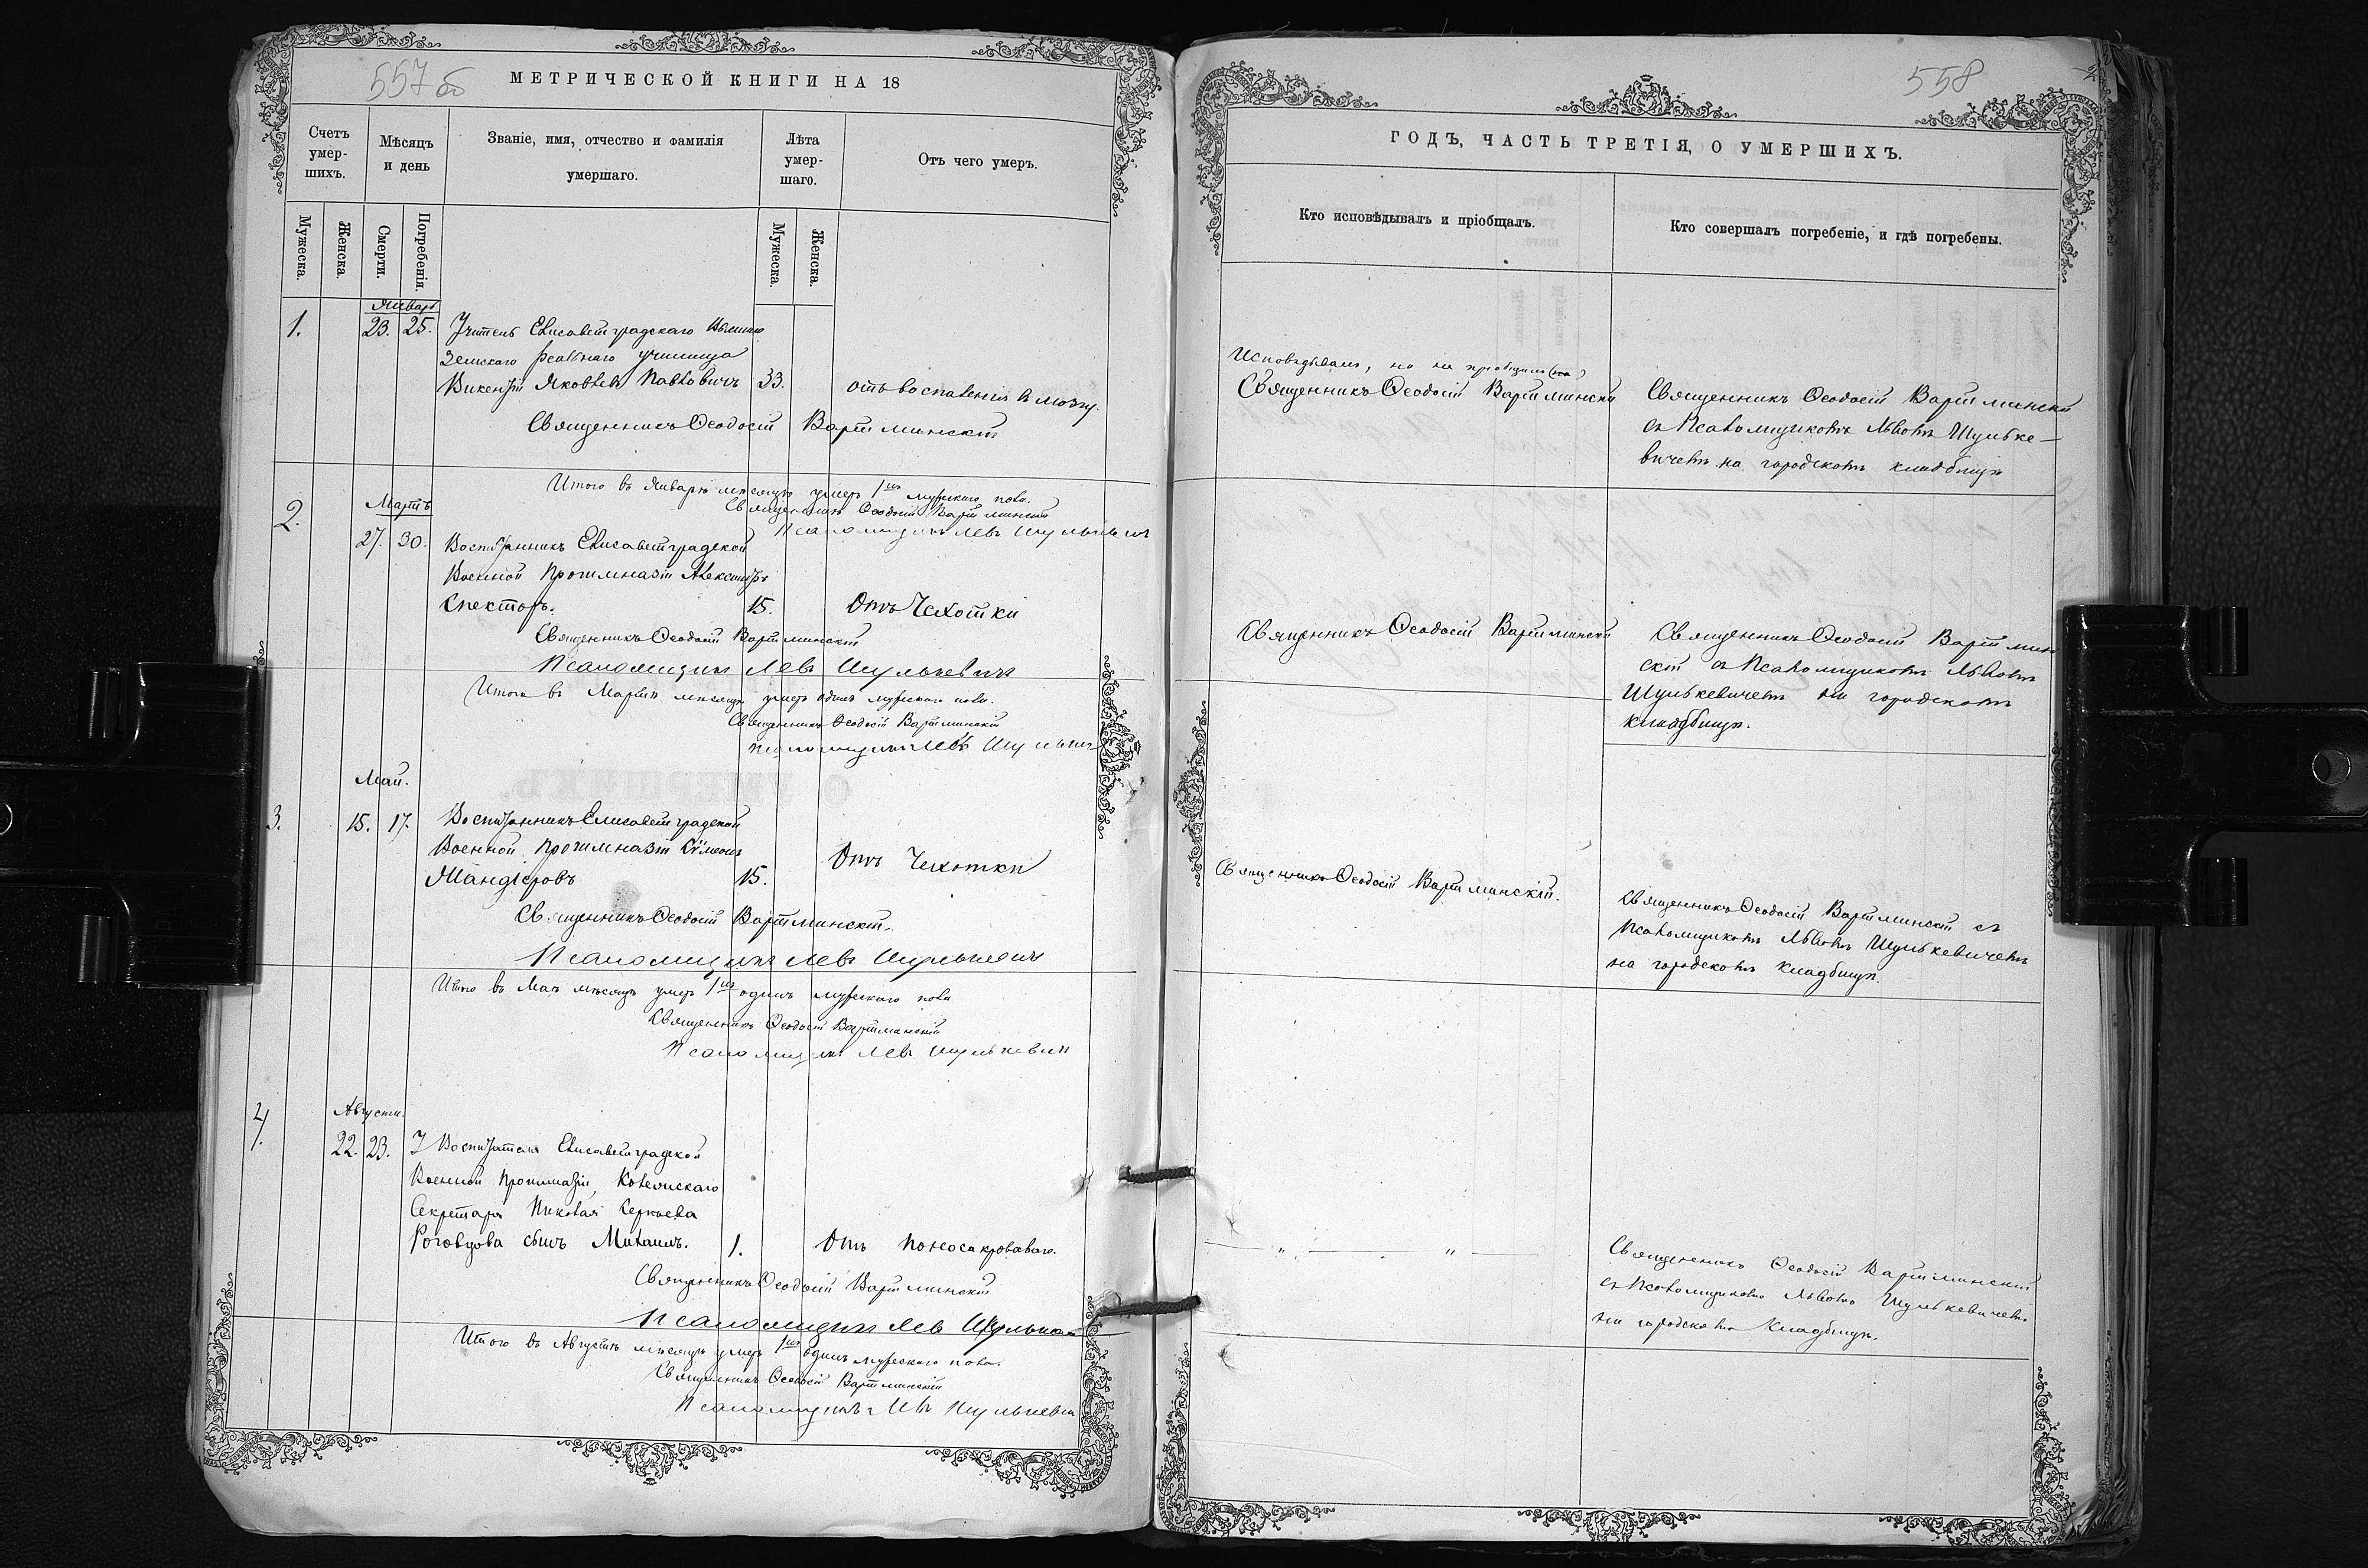 557 об
МЕТРИЧЕСКОЙ КНИГИ НА 18
Счетъ умер-шихъ.
Мѣсяцъ и день
Званіе, имя, отчество и фамилія умершаго.
Лѣта умер-шаго.
Отъ чего умеръ.
Мужеска.
Женска.
Смерти.
Погребенія.
Мужеска.
Женска.
Январь
1. 23. 25. Учитель Елисаветградскаго
Земскаго Реальнаго училища
Викентій Яковлевъ Павловичъ 33. отъ воспаленія въ мозгу.
Священникъ Ѳеодосій Вартминскій
Итого въ Январѣ мѣсяцѣ умеръ 1 мужескаго пола.
Священникъ Ѳеодосій Вартминскій
Псаломщикъ Левъ Шулькевичъ
Мартъ
2. 27. 30. Воспитанникъ Елисаветградской
Военной Прогимназіи Александръ
Спекторъ. 15. Отъ Чахотки
Священникъ Ѳеодосій Вартминскій
Псаломщикъ Левъ Шулькевичъ
Итого въ Мартѣ мѣсяцѣ умеръ одинъ мужескаго пола.
Священникъ Ѳеодосій Вартминскій
Псаломщикъ Левъ Шулькевичъ
Май.
3. 15. 17. Воспитанникъ Елисаветградской
Военной Прогимназіи Сѵмеонъ
15. Отъ Чахотки
Священникъ Ѳеодосій Вартминскій.
Псаломщикъ Левъ Шулькевичъ
Итого въ Маѣ мѣсяцѣ умеръ 1 одинъ мужескаго пола
Священникъ Ѳеодосій Вартминскій
Псаломщикъ Левъ Шулькевичъ
Августъ.
4. 22. 23. У Воспитателя Елисаветградской
Военной Прогимназіи, Коллежскаго
Секретаря Николая Сергѣева
Роговцова сынъ Михаилъ. 1. Отъ поноса кроваваго.
Священникъ Ѳеодосій Вартминскій
Псаломщикъ Левъ Шулькевичъ
Итого въ Августѣ мѣсяцѣ умеръ 1 одинъ мужескаго пола.
Священникъ Ѳеодосій Вартминскій
Псаломщикъ Левъ Шулькевичъ
558
ГОДЪ, ЧАСТЬ ТРЕТІЯ, О УМЕРШИХЪ.
Кто исповѣдывалъ и пріобщалъ.
Кто совершалъ погребеніе, и гдѣ погребены.
Исповѣдывалъ, но не пріобщилъ
Священникъ Ѳеодосій Вартминскій
Священникъ Ѳеодосій Вартминскій
съ Псаломщикомъ Львомъ Шульке-
вичемъ на городскомъ кладбищѣ
Священникъ Ѳеодосій Вартминскій
Священникъ Ѳеодосій Вартмин
скій съ Псаломщикомъ Львомъ
Шулькевичемъ на городскомъ
кладбищѣ.
Священникъ Ѳеодосій Вартминскій.
Священникъ Ѳеодосій Вартминскій съ
Псаломщикомъ Львомъ Шулькевичемъ
на городскомъ кладбищѣ.
— " — . — " —
Священникъ Ѳеодосій Вартминскій
съ Псаломщикомъ Львомъ Шулькевичемъ
на городскомъ Кладбищѣ.